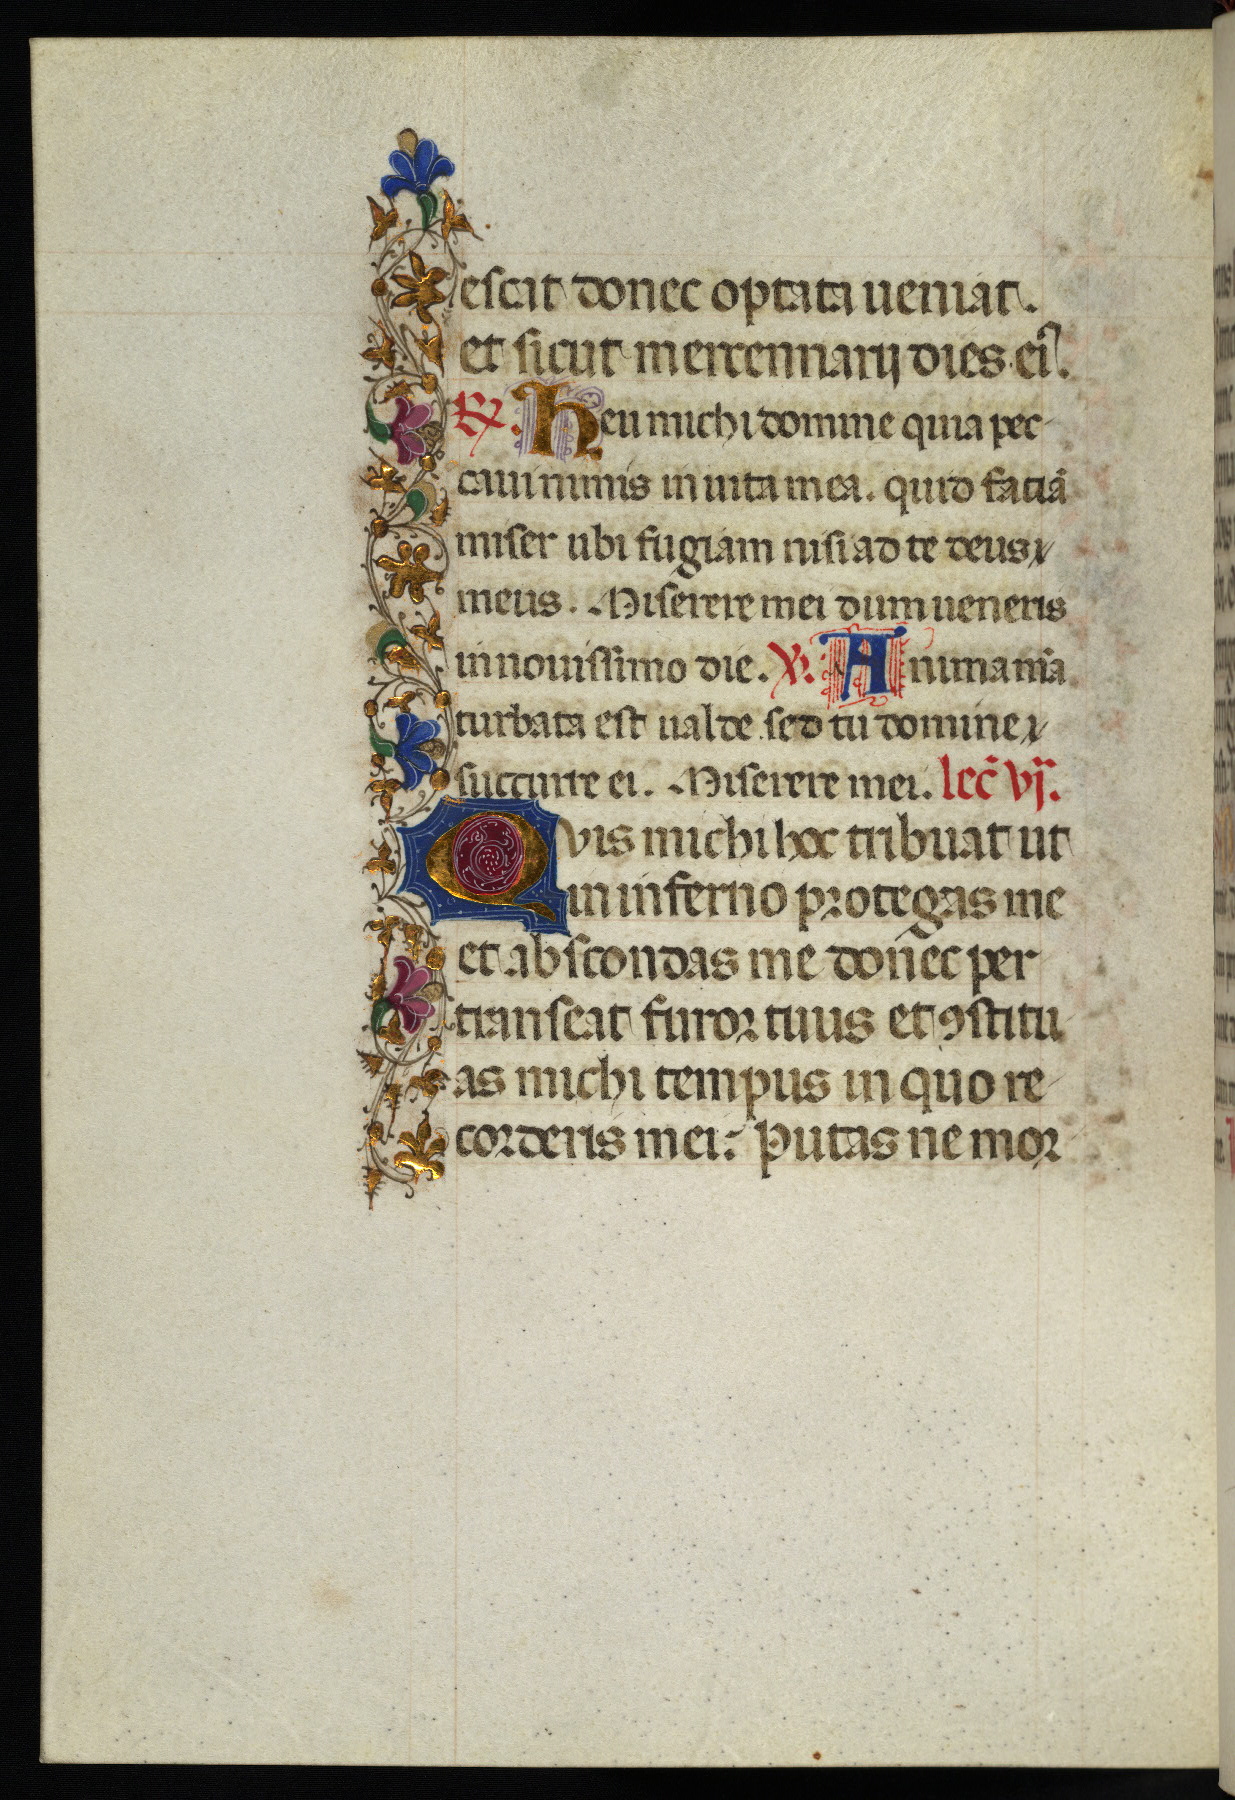 escit donec optata ueniat.
et sicut mercennarij dies ei᾽.
℟. Heu michi domine quia pec-
caui nimis in uita mea. quid faciā
miser ubi fugiam nisi ad te deus
meus. Miserere mei dum ueneris
in nouissimo die. ℣. Anima m̄a
turbata est ualde sed tu domine
succurre ei. Miserere mei. lec̄ vij.
Qvis michi hoc tribuat ut
in inferno protegas me
et abscondas me donec per
transeat furor tuus et ꝯstitu
as michi tempus in quo re-
corderis mei: Putas ne mor